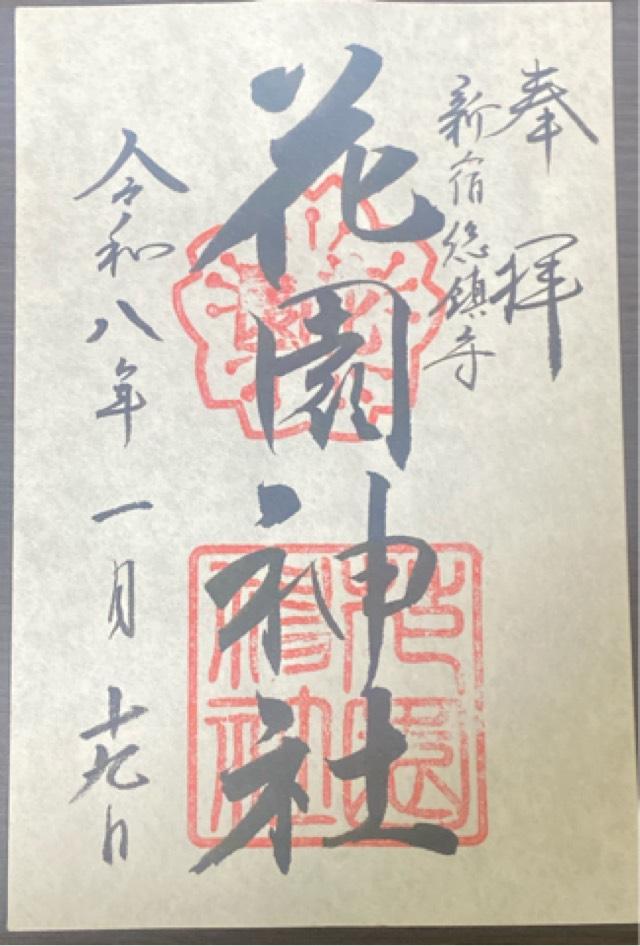 奉拝
新宿総鎮守
花園神社
花園神社
令和八年一月十九日